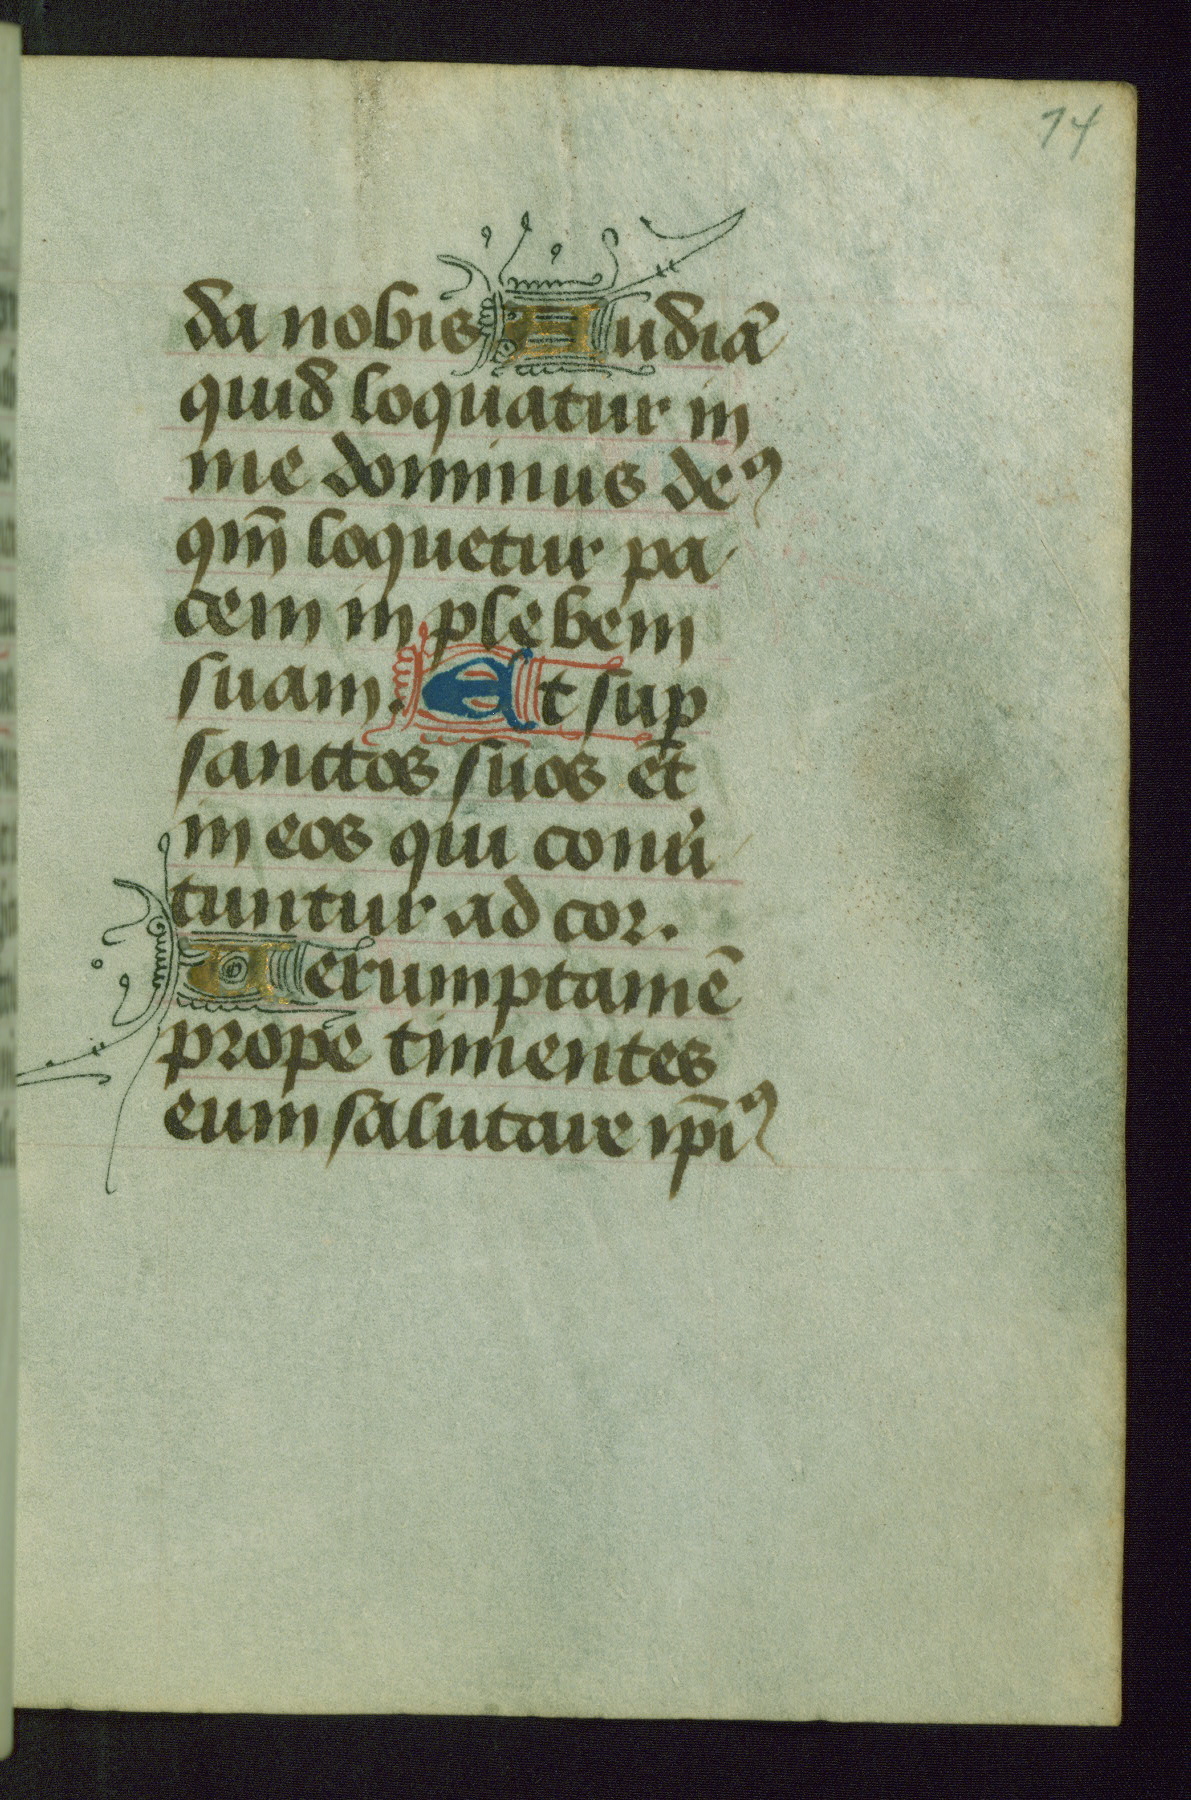 14
da nobis Audiā
quid loquatur in
me dominus deꝰ
qm̄ loquetur pa
cem in plebem
suam. Et suꝑ
sanctos suos et
in eos qui conu̾
tuntur ad cor.
Verumptamē
prope timentes
eum salutare ip̄iꝰ